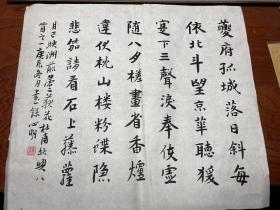 夔府孤城落日斜每
依北斗望京華聽猨
實下三聲淚奉使虛
隨八月槎畫省香爐
違伏枕山樓粉堞隱
悲笳請看石上藤蘿
月已映洲前蘆荻花杜甫秋興八
首之一庚辰冬月